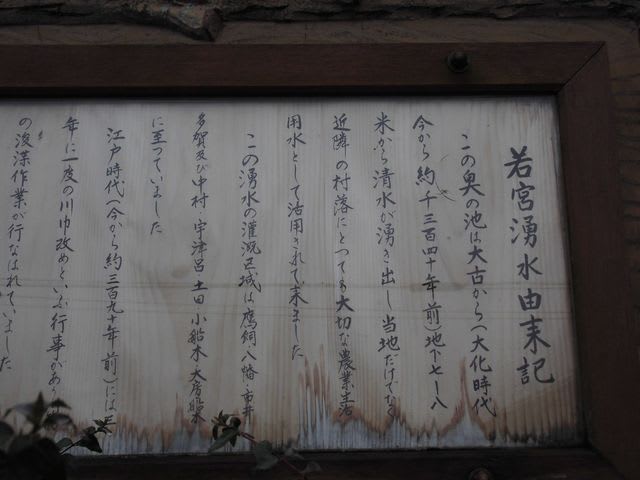 若宮湧水由来記
この奥の池は大古から(大化時代
今から約千三百四十年前)地下七~八
米から清水が湧き出し当地だけでなく
近隣の村落にとつても大切な農業生活
用水として活用されて来ました
この湧水の灌漑区域は鷹飼八幡市井
多賀及び中村宇津呂土田小船木大房船木
に至つていました
江戸時代(今から約三百九十年前)には三
年に一度の川巾改めという行事があり
の浚渫作業が行なはれていました